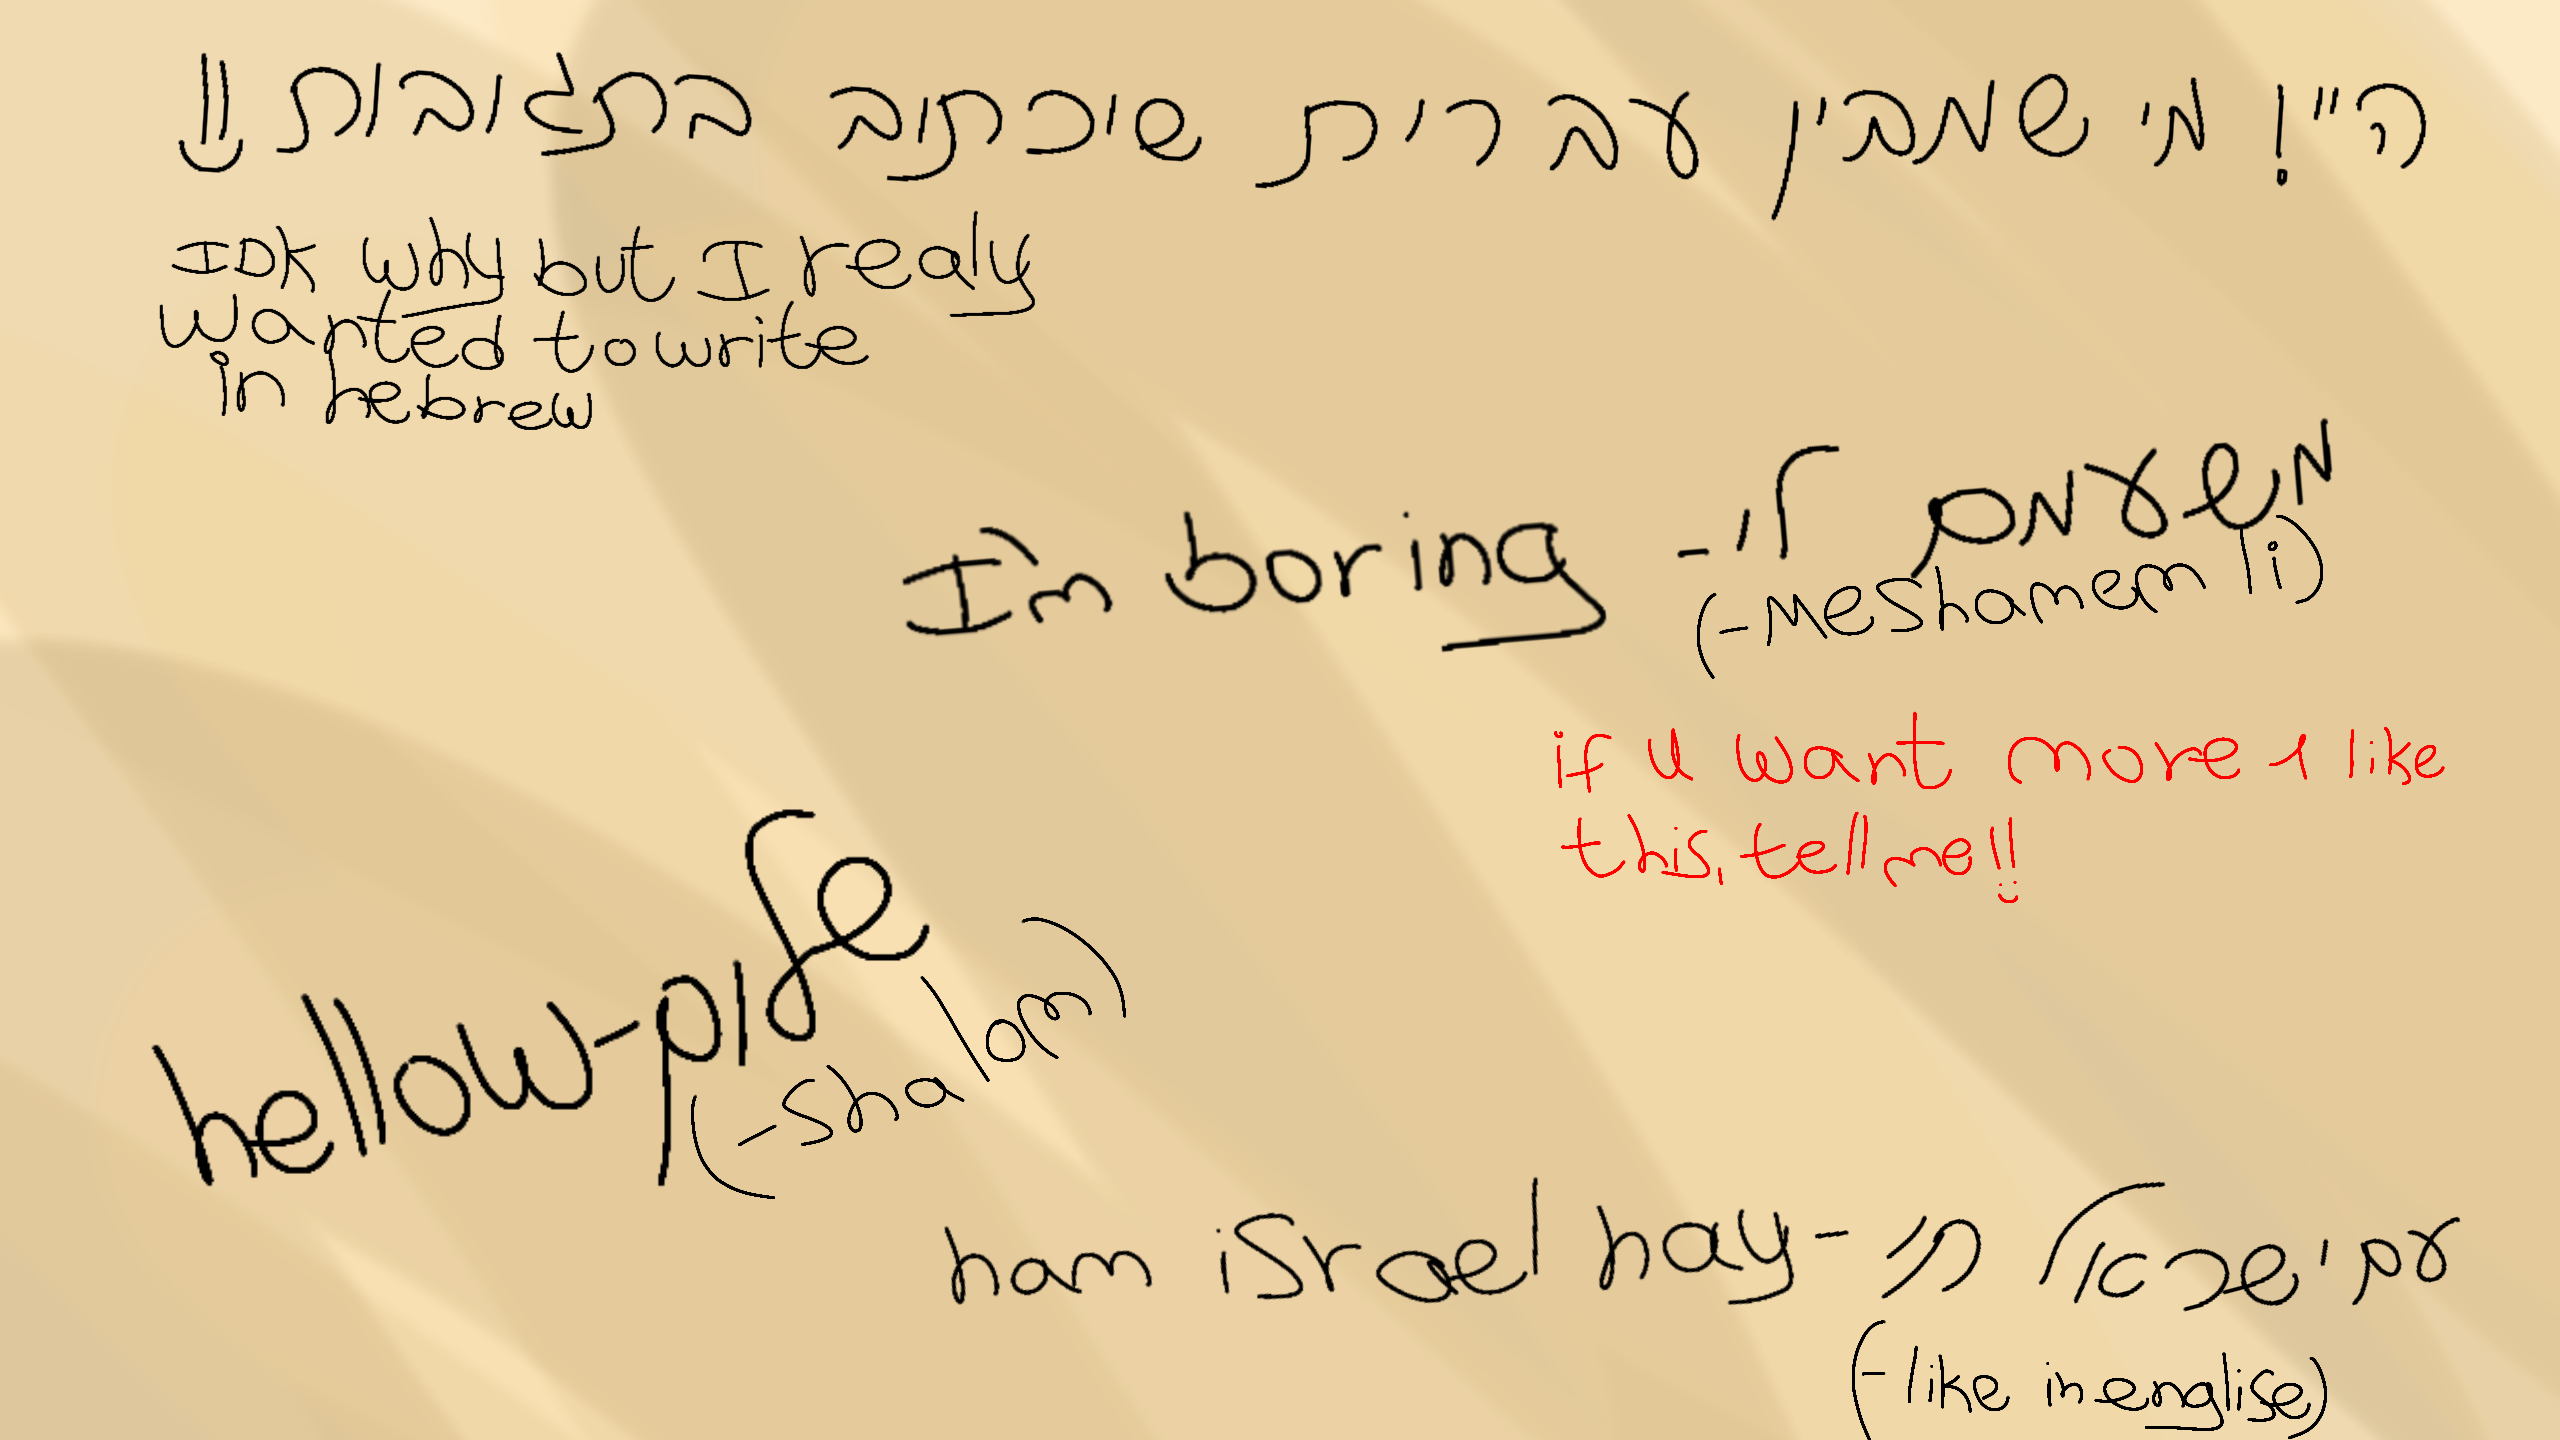 היי! מי שמבין עברית שיכתוב בתגובות!!
IDK why but I realy
wanted to write
in hebrew
משעמם לי - I'm boring
(-Meshamem li)
if u want more 1 like
this, tell me!!
שלום-hellow
(-shalom)
עם ישראל חי - ham israel hay
(-like in englise)